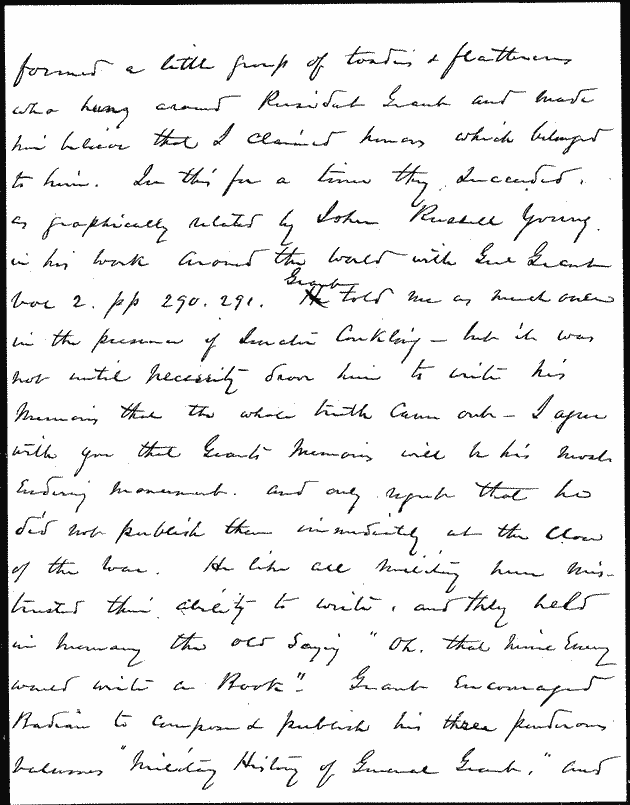 formed a little group of toadies & flatterers
who hung around President Grant and made
him believe that I claimed honors which belonged
to him. In this for a time they succeeded.
as graphically related by John Russell Young.
in his work Around the World with Genl Grant
vol 2. pp 290. 291. Grant told me as much once
in the presence of Senator Conkling - but it was
not until necessity drove him to write his
Memoirs that the whole truth came out - I agree
with you that Grants Memoirs will be his most
Enduring Monument. and only regret that he
did not publish them immediately at the Close
of the War. He like all Military men mis-
trusted their ability to write, and they held
in memory the old Saying "Oh. that mine Enemy
would write a Book". Grant Encouraged
Badeau to compose & publish his three ponderous
volumes "Military History of General Grant," and